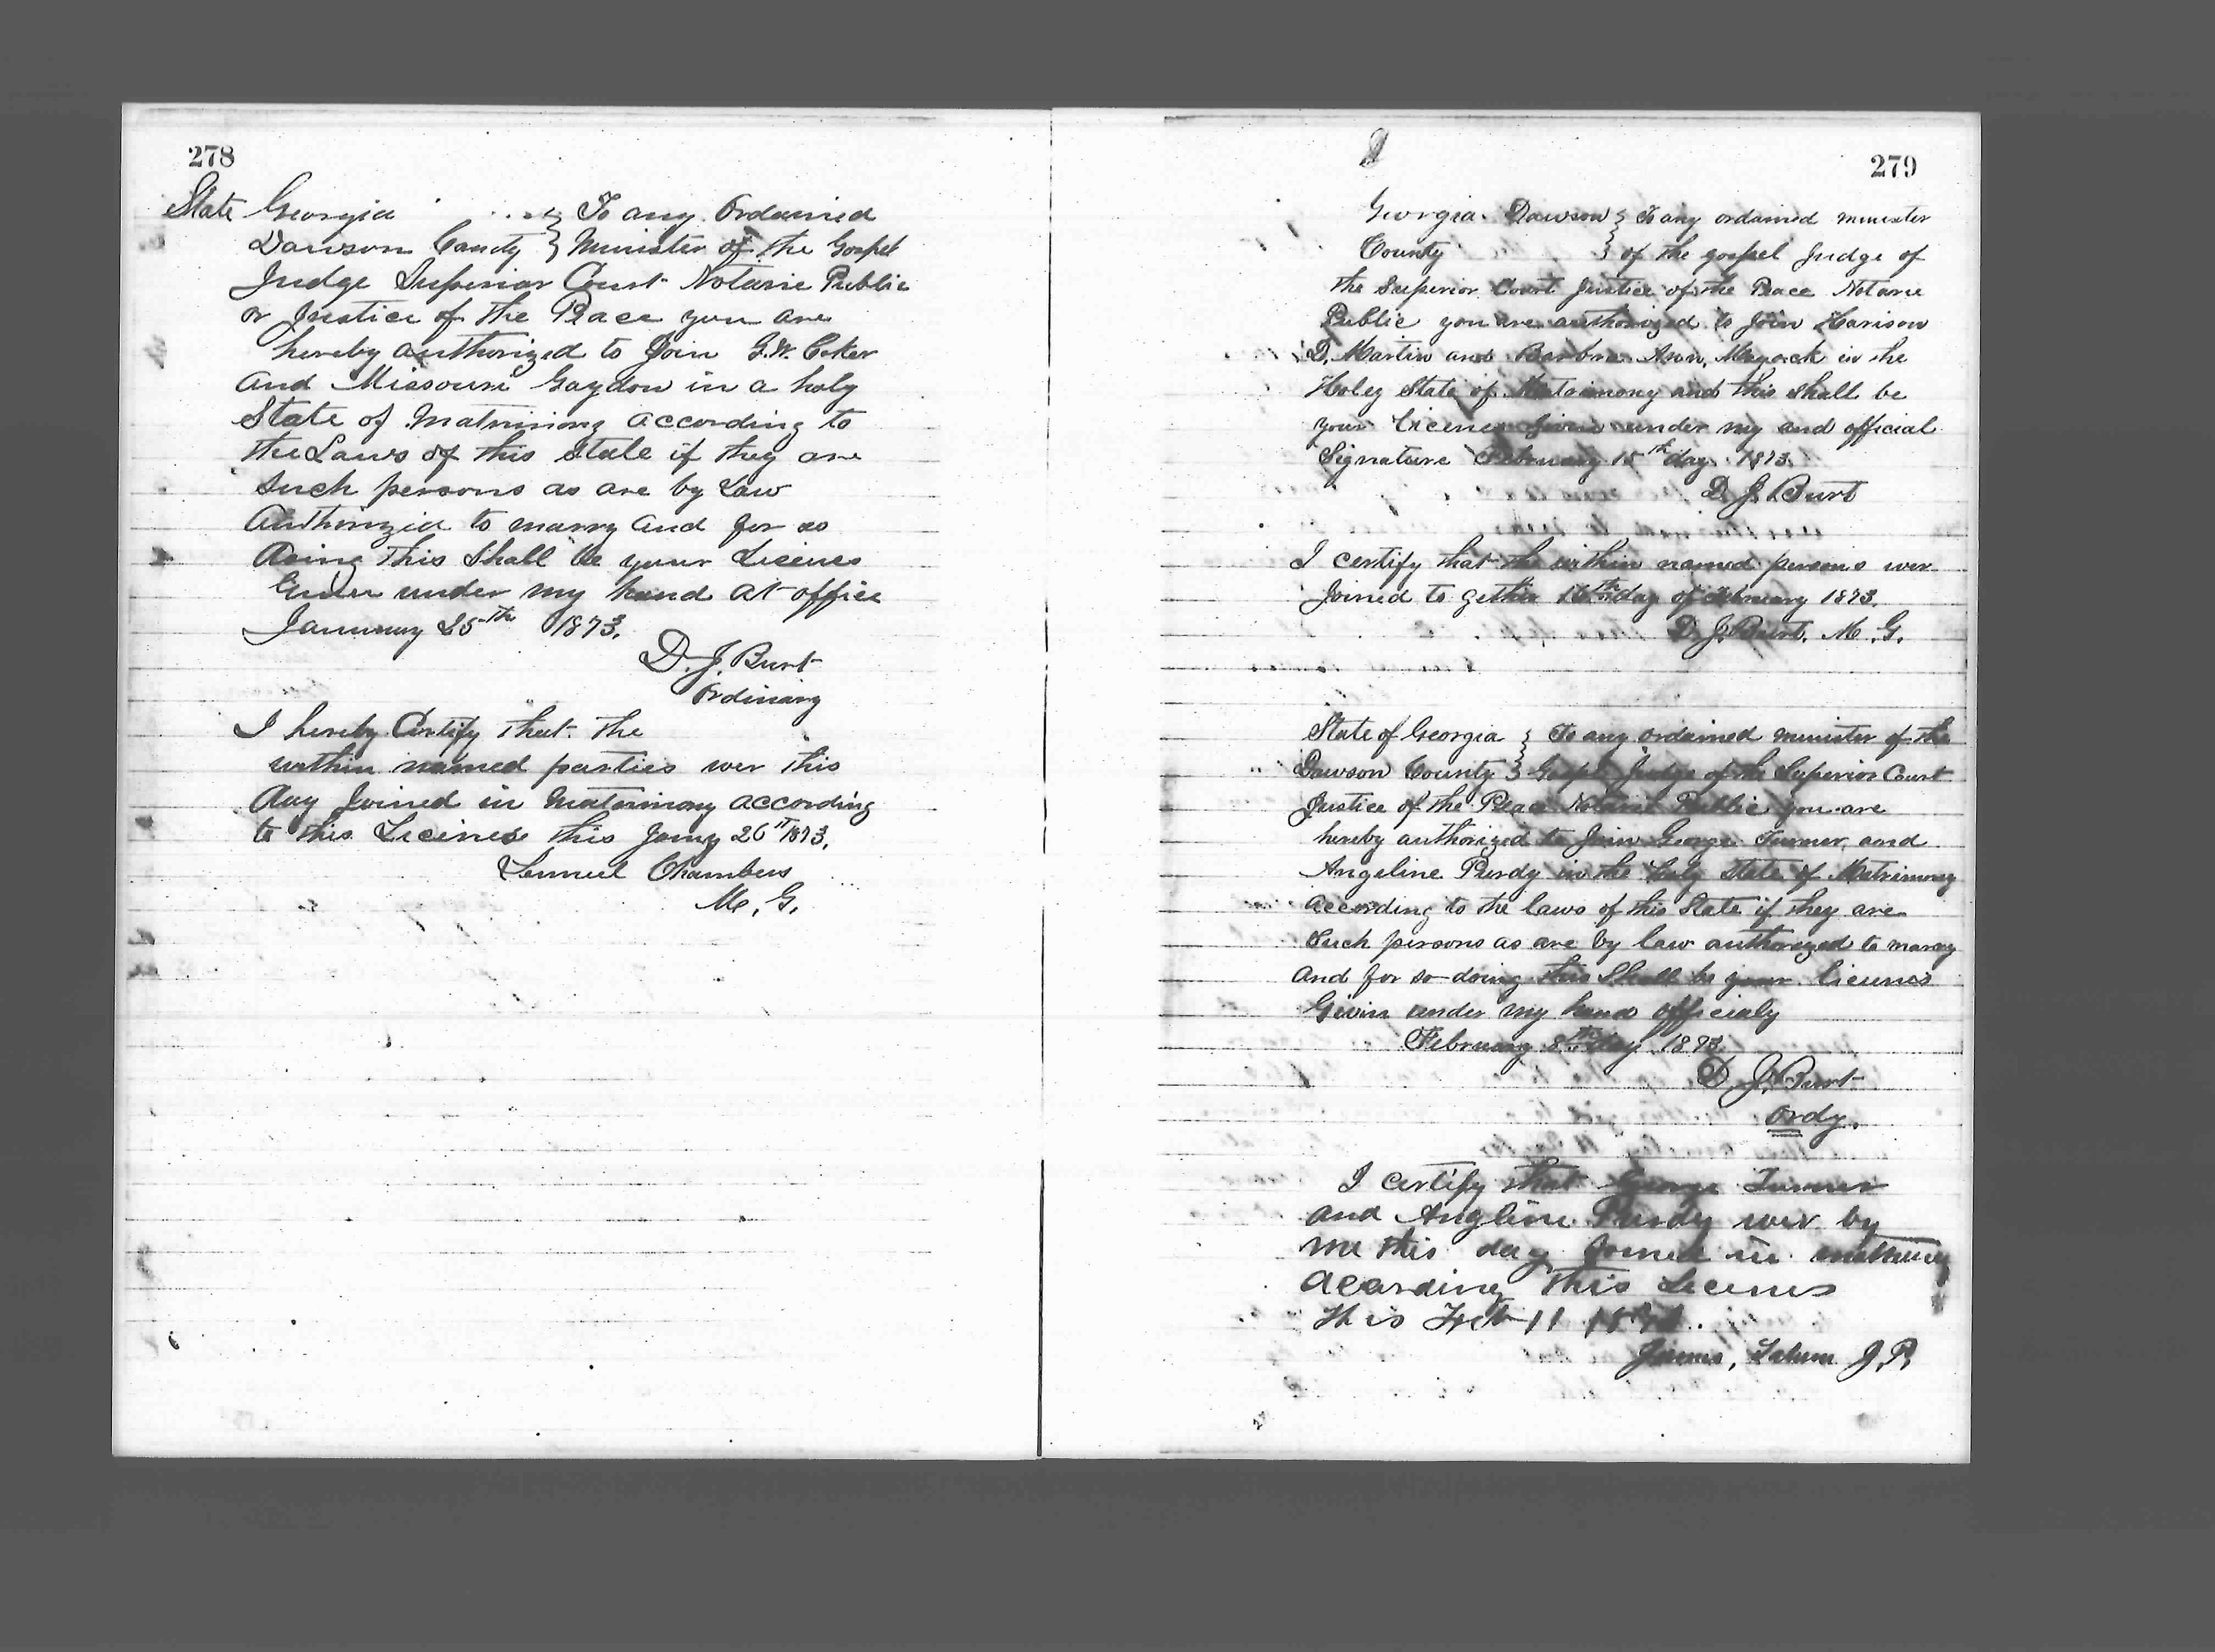 278
State Georgia } To any Ordained
Dawson County } Minister of the Gospel
Judge Superior Court Notarie Public
or Justice of the Peace you are
hereby authorized to Join G.W. Coker
and Missouri Gaydon in a holy
State of Matrimony according to
the Laws of this State if they are
Such persons as are by Law
Authorized to marry and for so
doing this Shall be your Licenes
Given under my hand at office
January 25th 1873.
D. J. Burt
Ordinary
I hereby Certify that the
within named parties wer this
day Joined in Matrimony according
to this Licines this Jany 26th 1873.
Lemuel Chambers
M. G.
279
Georgia Dawson } To any ordained minister
County } of the gospel Judge of
the Superior Court Justice of the Peace Notarie
Public you are authorized to Join Harison
D. Martin and Barbra Ann in the
Holey State of Matrimony and this shall be
your Licenes Given under my and official
Signature February 15th day 1873
D. J. Burt
I certify that the within named persons wer
Joined to gether 16th day of February 1873.
D. J. Burt, M. G.
State of Georgia } To any ordained minister of the
Dawson County } Gospel Judge of the Superior Court
Justice of the Peace Notarie Public you are
hereby authorized to Join George Turner and
Angeline Purdy in the holy State of Matrimony
according to the laws of this State if they are
Such persons as are by law authorized to marry
and for so doing this Shall be your licenes
Given under my hand officialy
February 8th day 1873
D. J. Burt
Ordy.
I certify that George Turner
and Angline Purdy wer by
me this day Joined in
acarding this Licenes
this Feb 11
James, Tatum J. P.